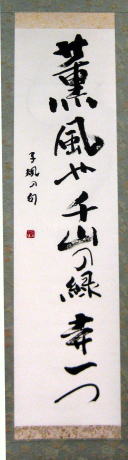 薫風や千山の緑寺一つ
子規の句